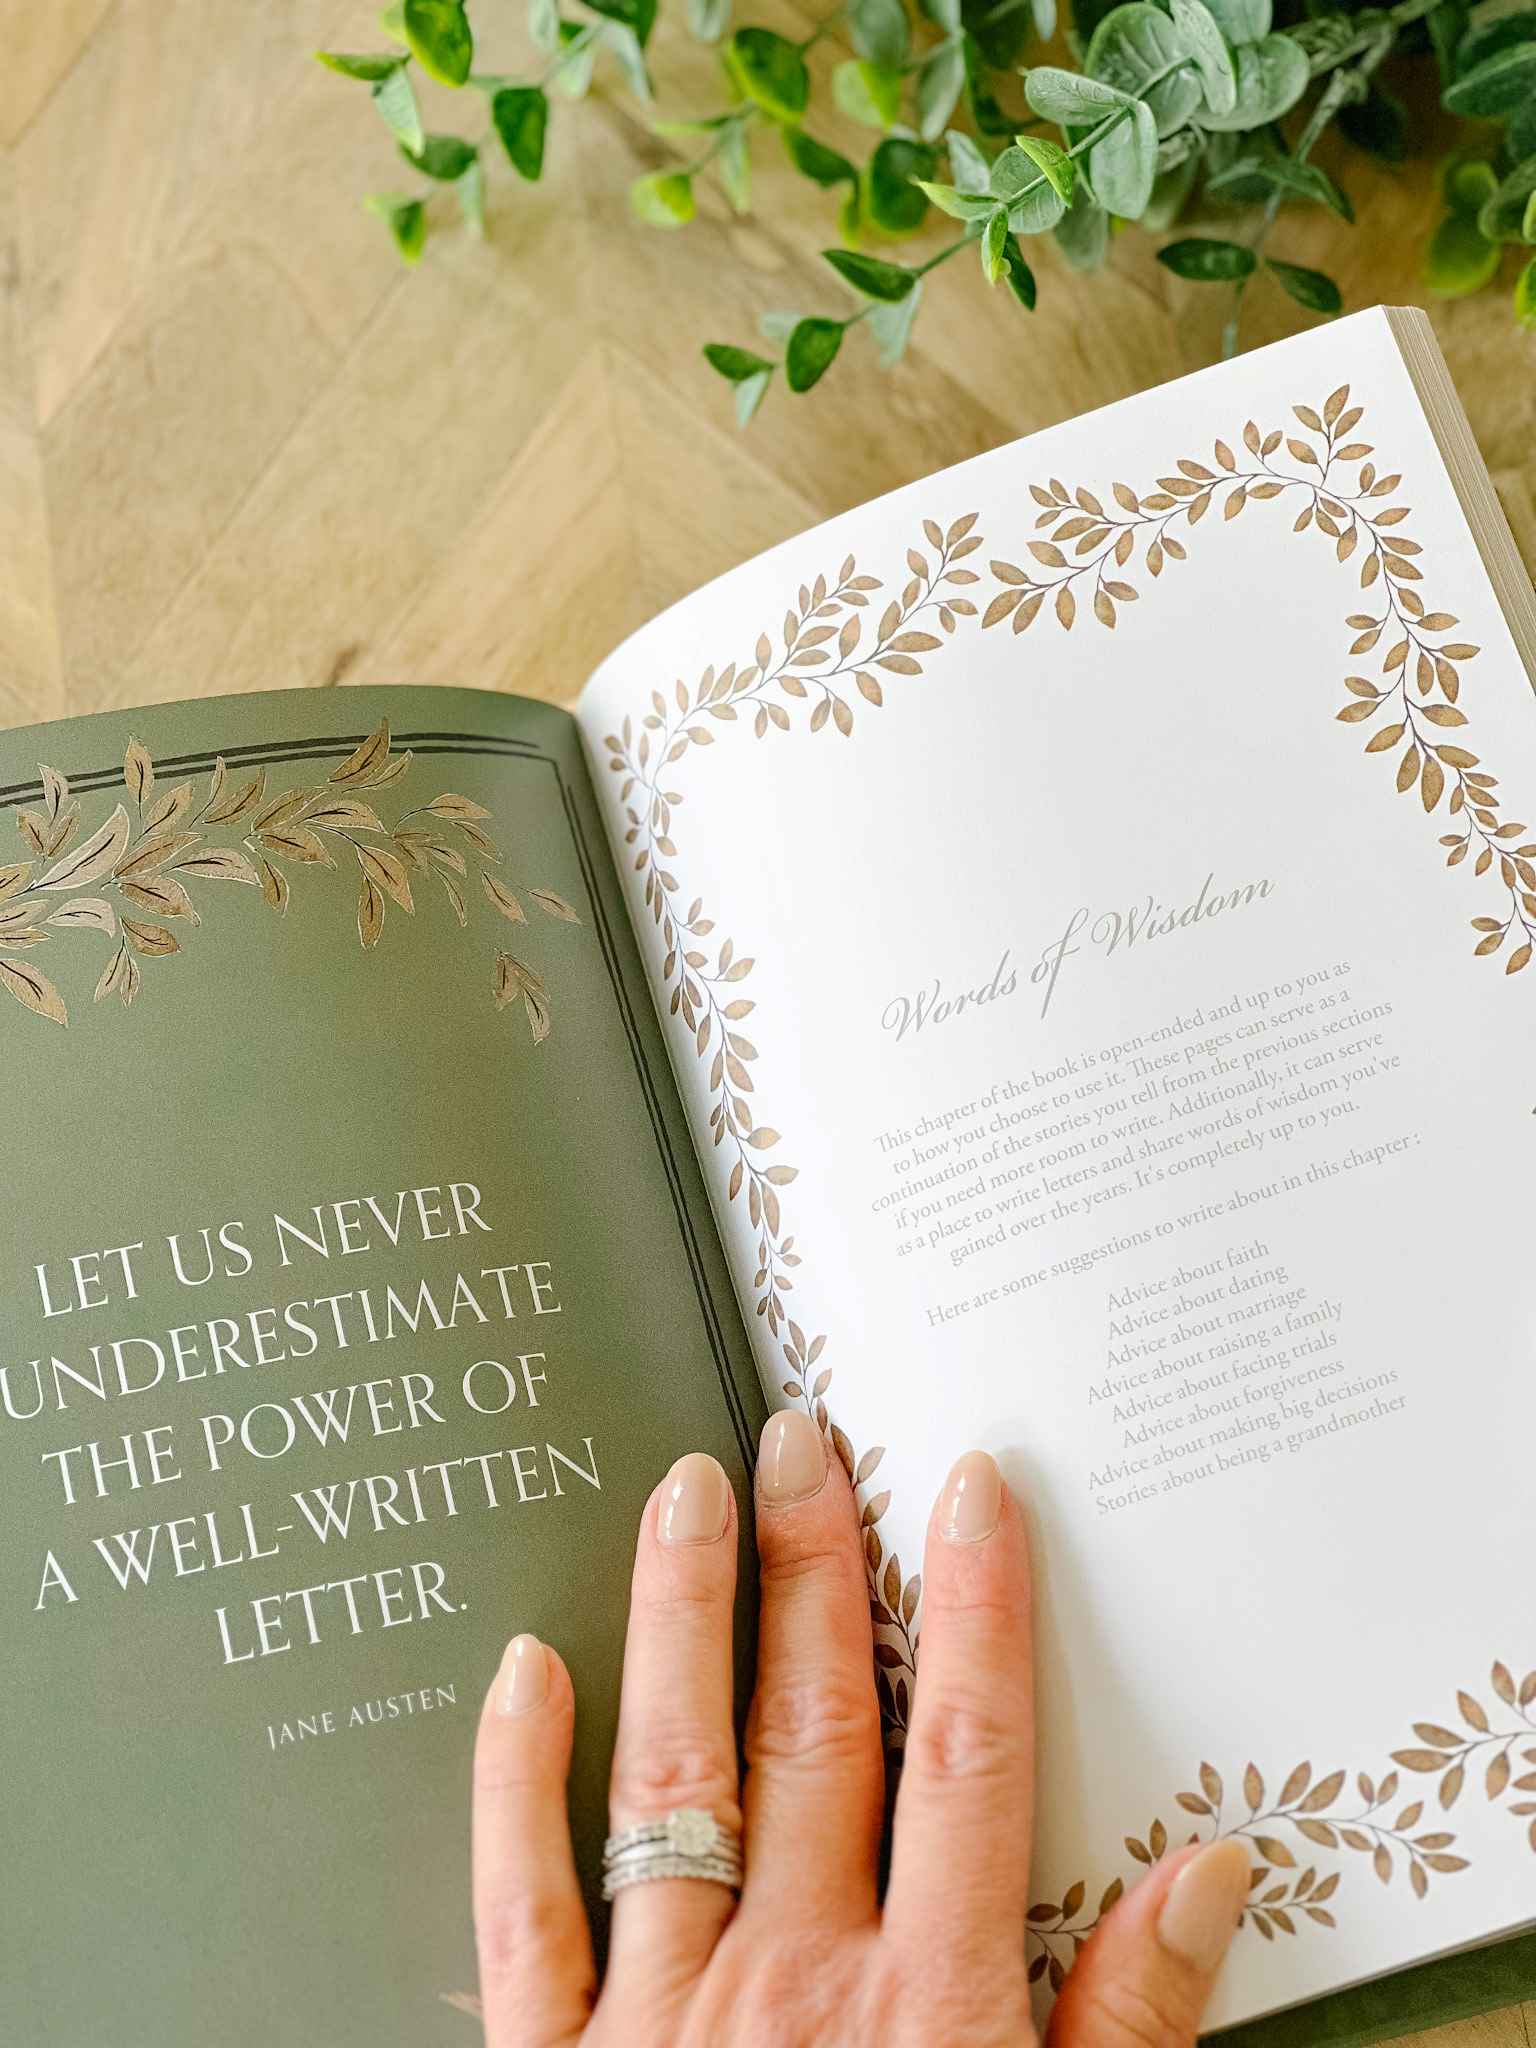 LET US NEVER
UNDERESTIMATE
THE POWER OF
A WELL-WRITTEN
LETTER.
JANE AUSTEN
Words of Wisdom
This chapter of the book is open-ended and up to you as
to how you choose to use it. These pages can serve as a
continuation of the stories you tell from the previous sections
if you need more room to write. Additionally, it can serve
as a place to write letters and share words of wisdom you've
gained over the years. It's completely up to you.
Here are some suggestions to write about in this chapter :
Advice about faith
Advice about dating
Advice about marriage
Advice about raising a family
Advice about facing trials
Advice about forgiveness
Advice about making big decisions
Stories about being a grandmother